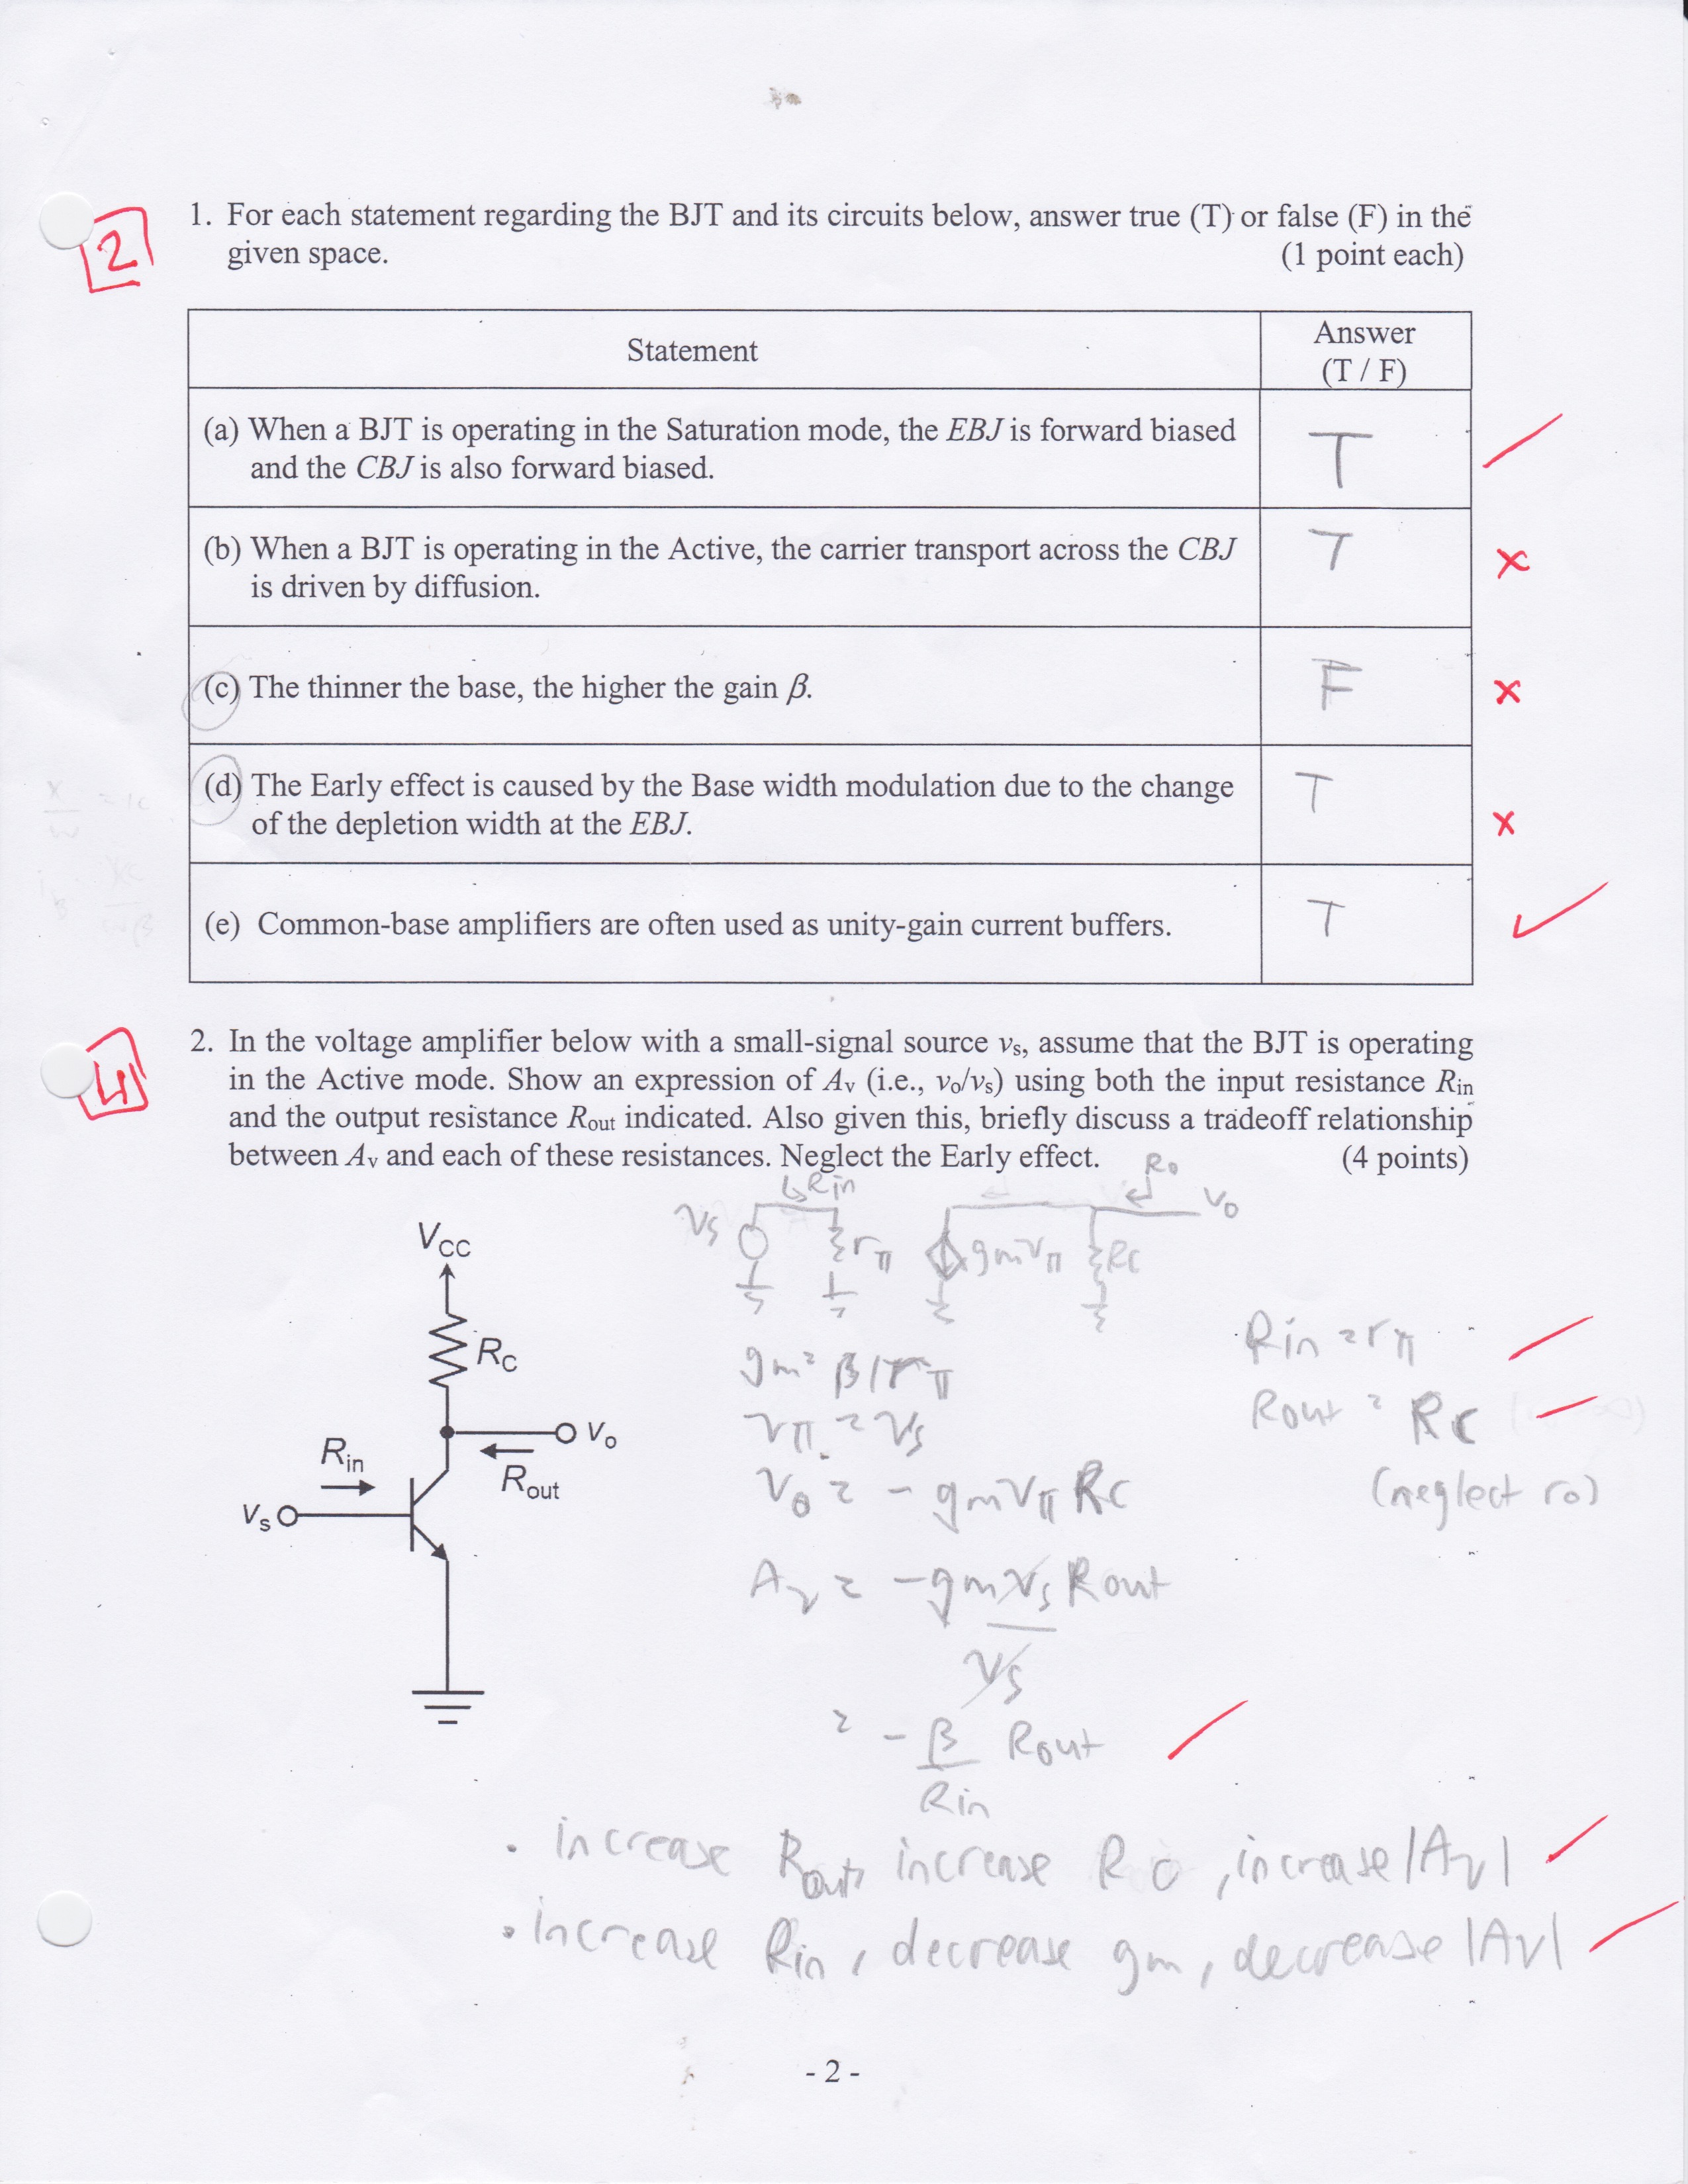 2
1. For each statement regarding the BJT and its circuits below, answer true (T) or false (F) in the
given space. (1 point each)
Statement
Answer
(T / F)
(a) When a BJT is operating in the Saturation mode, the EBJ is forward biased
and the CBJ is also forward biased.
T
(b) When a BJT is operating in the Active, the carrier transport across the CBJ
is driven by diffusion.
T
(c) The thinner the base, the higher the gain β.
F
(d) The Early effect is caused by the Base width modulation due to the change
of the depletion width at the EBJ.
T
(e) Common-base amplifiers are often used as unity-gain current buffers.
T
4
2. In the voltage amplifier below with a small-signal source vs, assume that the BJT is operating
in the Active mode. Show an expression of Av (i.e., vo/vs) using both the input resistance Rin
and the output resistance Rout indicated. Also given this, briefly discuss a tradeoff relationship
between Av and each of these resistances. Neglect the Early effect. (4 points)
Rin
Ro
vs
rπ
gmvπ
RC
vo
VCC
RC
vo
Rin
Rout
vs
gm = β/rπ
vπ = vs
vo = - gmvπ RC
Av = -gmvs Rout
vs
= - β Rout
Rin
Rin = rπ
Rout = RC
(neglect ro)
· increase Rout, increase RC, increase |Av|
· increase Rin, decrease gm, decrease |Av|
- 2 -